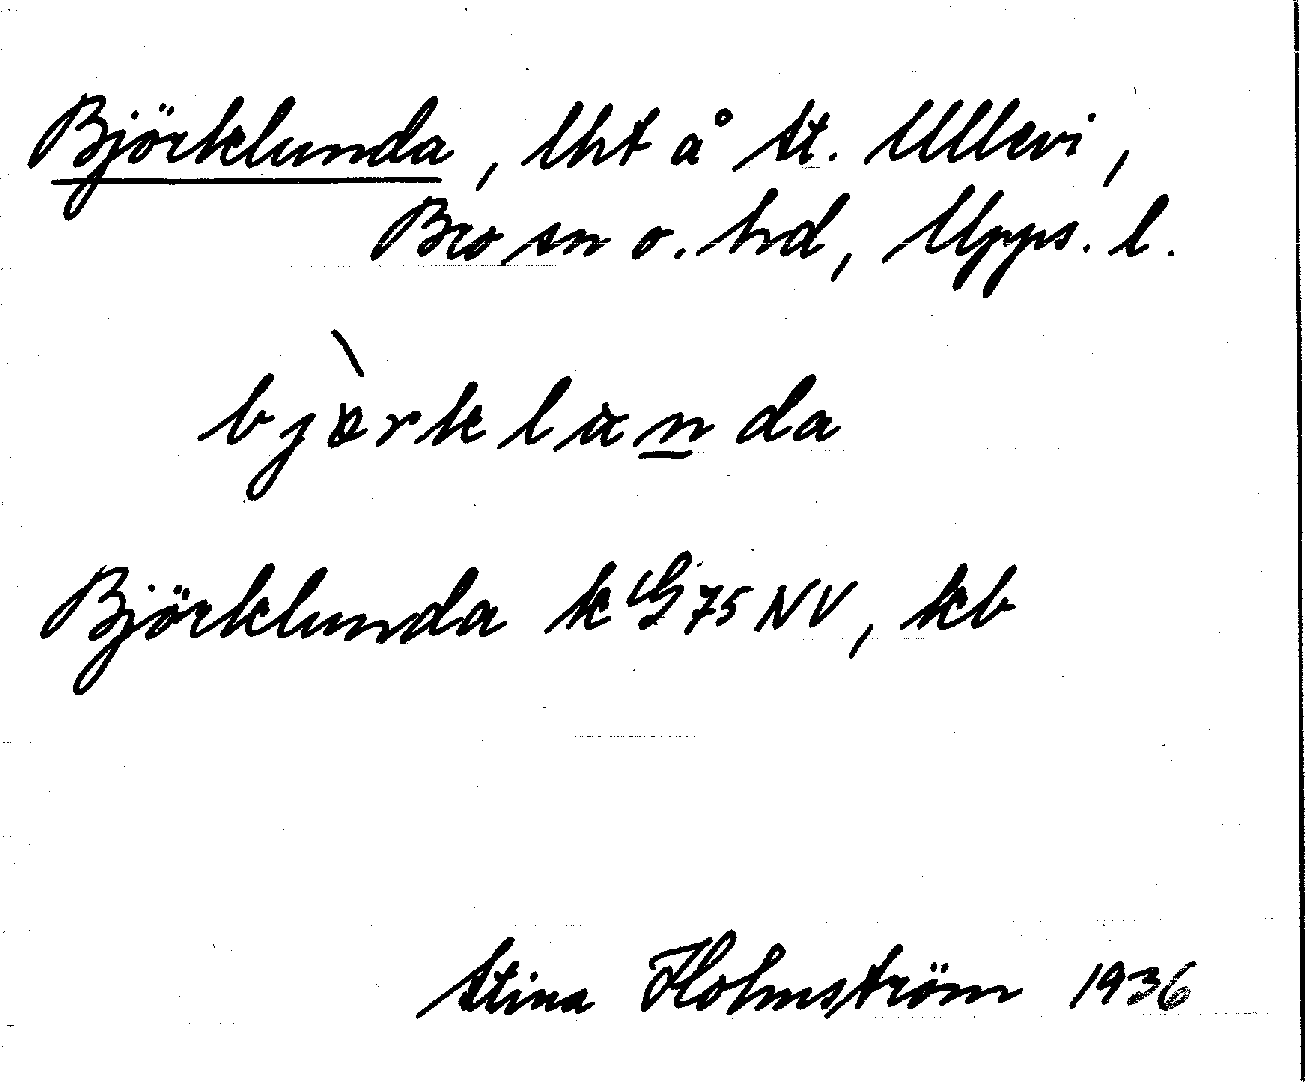 Björklunda, lht å St. Ullevi,
Bro sn o. hd, Upps. l.
bjòrklunda
Björklunda k G 75 NV, kb
Stina Holmström 1936